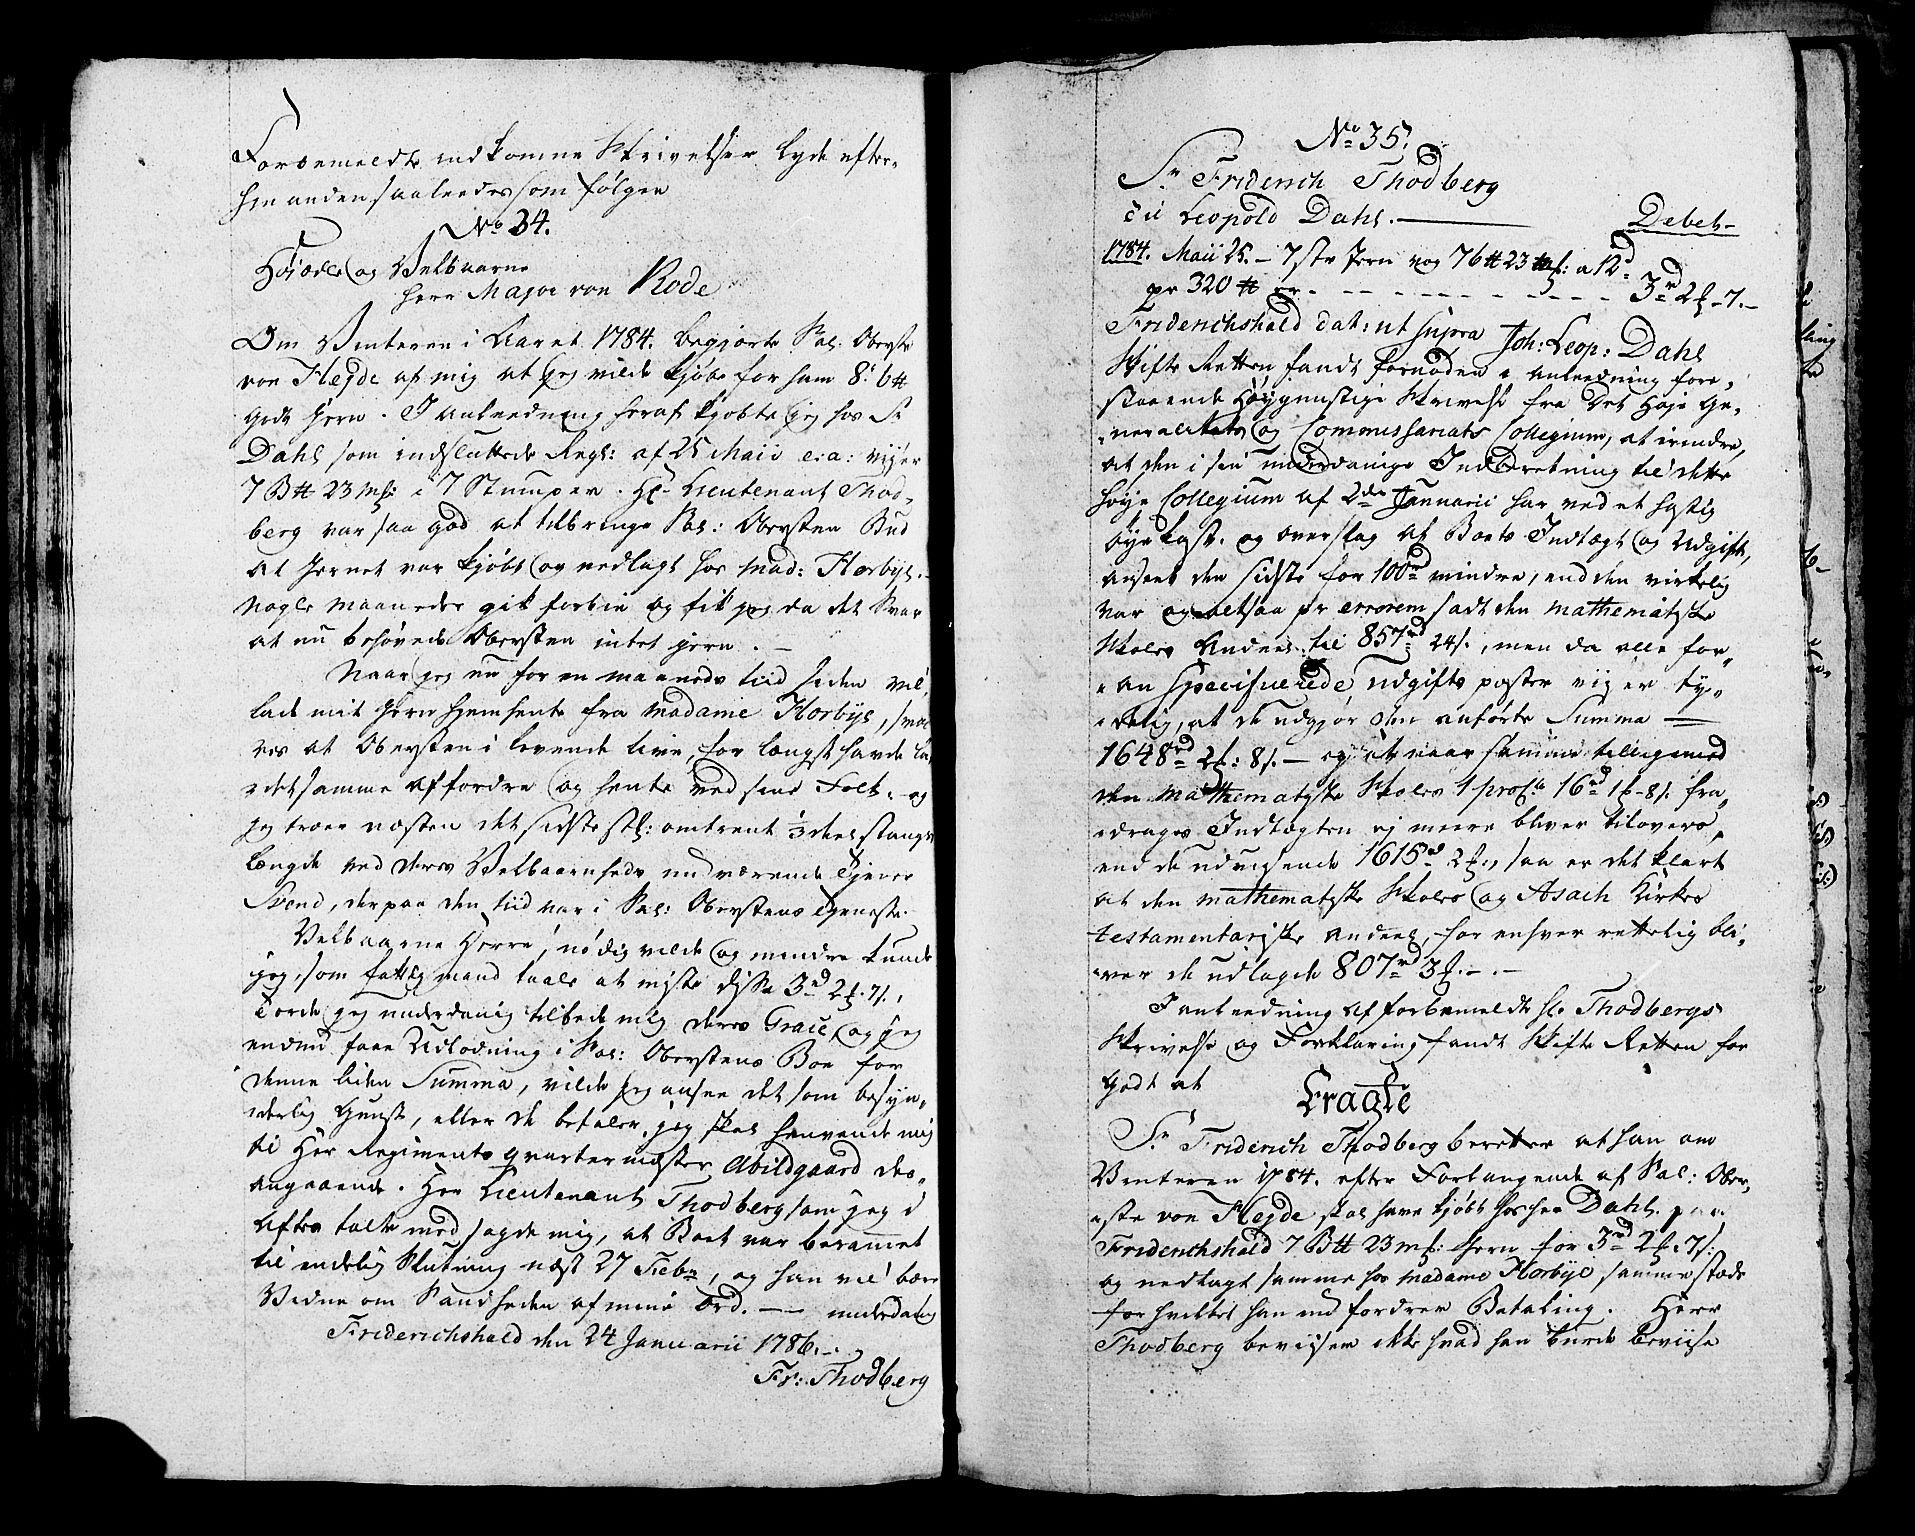 Forbemeldte indkomne Skrivelser lyde efter-
hinanden saaledes som følger
No 34.
Høiædle og Velbaarne
Herr Major von Rode
Om Vinteren i Aaret 1784. begjærte Sal: Oberste
von Hejde af mig at jeg vilde kjøbe for ham 8. b℔
godt Jern. I Anleedning heraf kjøbte jeg hos Sr
Dahl som indsluttede Regl: af 25 Maii e: a: viiser
7 B℔ 23 mk: i 7 Stumper. Hr Lieutenant Thod-
berg var saa god at tilbringe Sal: Obersten Bud
at Jernet var kjøbt og nedlagt hos Mad: Horbye.
Nogle Maaneder gik forbie og fik jeg da det Svar
at nu behøvede Obersten intet jern. —
Naar jeg nu for en maaneds tiid siden vil
lade mit Jern hjemhente fra Madame Horbye, svares
at Obersten i levende live, for længst havde la-
det samme affordre og hente ved sine Folk, og
jeg troer næsten det sidste stk: omtrent 1/3 deel stangs
længde ved deres Velbaarenheds nuværende Tjener
Svend, der paa den tiid var i Sal: Oberstens Tjeneste.
Velbaarne Herre, nødig vilde og mindre kunde
jeg, som fattig mand taale at miste disse 3rd 2k. 7s.,
Torde jeg underdanig tilbede mig deres Grace, og jeg
endnu faae Udlodning i Sal: Oberstens Boe for
denne liden Summa, vilde jeg ansee det som besyn-
derlig Gunst, eller de befaler, jeg skal henvende mig
til Her Regiments qvartermester Abildgaard des-
angaaende. Her Lieutenant Thodberg som jeg i
Aftes talte med sagde mig, at Boet var berammet
til endelig Slutning næst 27 Febr, og han vil bære
Vidne om Sandheden af mine Ord. — underdanig
Friderichshald den 24 Januarii 1786. —
Fr: Thodberg
No 35.
Sr Friderich Thodberg
til Leopold Dahl. — Debet —
1784. Maii 25. — 7 str Jern vog 76℔ 23 mk: a 12rd
pr 320 ℔ er - - - - - - - - 3rd 2k - 7. —
Friderichshald dat: ut supra Joh: Leop: Dahl
Skifte Retten fandt fornøden i anleedning fore-
staaende Høygunstige Skrivelse fra Det Høje Ge-
neralitets og Commissariats Collegium, at erindre,
at den i sin underdanige Indberetning til dette
høye Collegium af 2den Januarii har ved et hastig
øyekast og overslag af Boets Indtægt og Udgift,
anseet den sidste for 100rd mindre, end den virkelig
var og altsaa pr errorem sadt den mathematiske
Skoles Andeel til 857rd 24s., men da alle for-
an Specificerede udgifts poster viiser ty-
delig, at de udgjør den anførte Summa —
1648rd 2k: 8s. — og at naar samme tilligemed
den Mathematiske Skoles 1 proCto 16rd 1k - 8s. fra-
drages Indtægten ej meere bliver tilovers,
end de udvisende 1615rd 2k:, saa er det klart
at den mathematiske Skoles og Asach Kirkes
testamentariske andeel, for enhver rettelig bli-
ver de udlagde 807rd 3k. - . —
I anleedning af forbemeldte Hr. Thodbergs
Skrivelse og Forklaring fandt Skifte Retten for
godt at
Eragte
Sr Friderich Thodberg beretter at han om
Vinteren 1784. efter Forlangende af Sal: Ober-
ste von Hejde skal have kjøbt hos Her Dahl paa
Friderichshald 7 B℔ 23 mk: Jern for 3rd 2k. 7s.
og nedlagt samme hos Madame Horbye sammestæds
for hvilket han nu fordrer Betaling. Herr
Thodberg beviiser ikke hvad han burde beviise